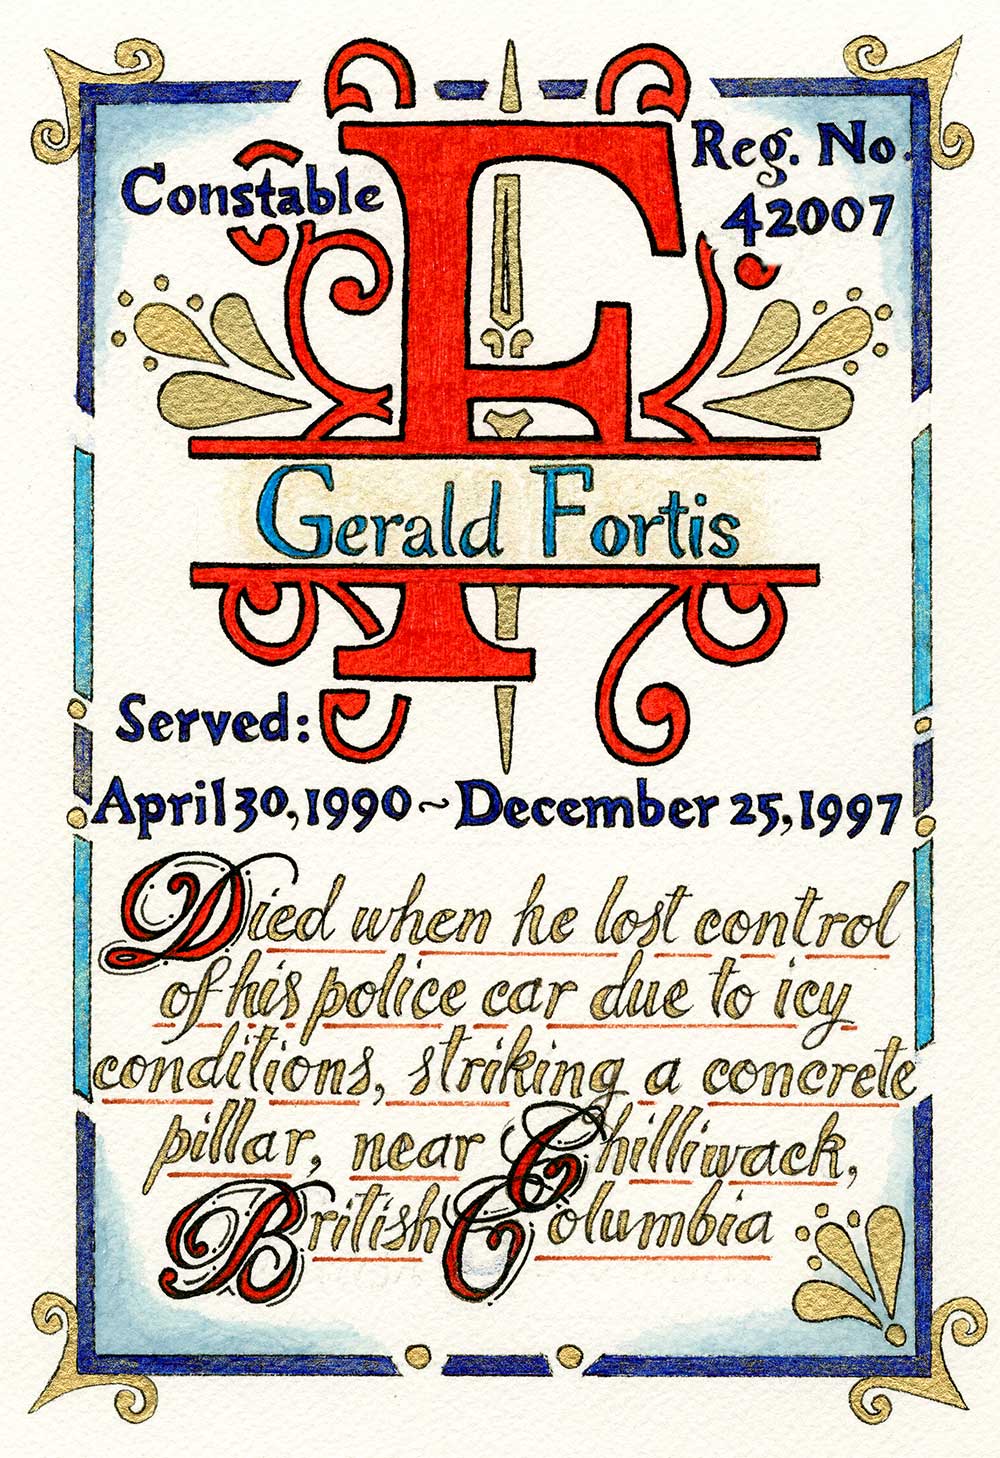 Constable
F
Reg. No.
42007
Gerald Fortis
Served:
April 30, 1990 ~ December 25, 1997
Died when he lost control
of his police car due to icy
conditions, striking a concrete
pillar, near Chilliwack,
British Columbia